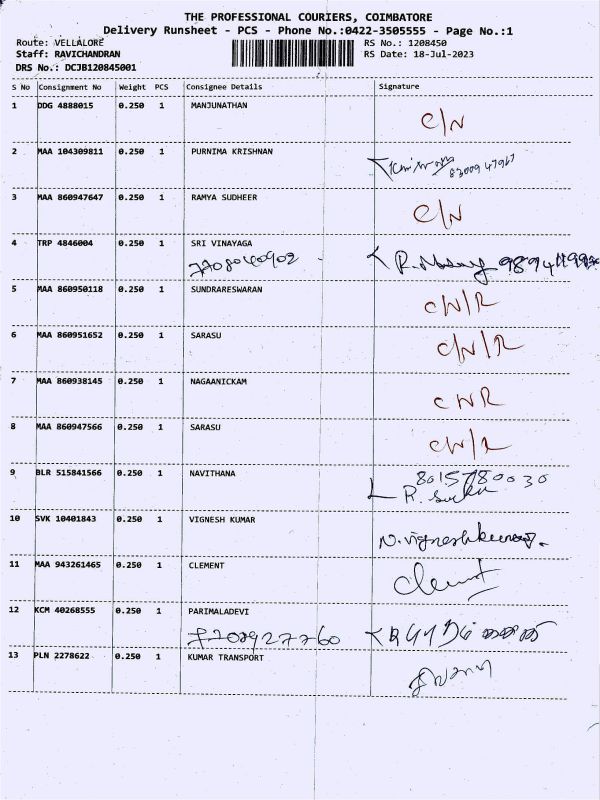 THE PROFESSIONAL COURIERS, COIMBATORE
Delivery Runsheet - PCS - Phone No.:0422-3505555 - Page No.:1
Route: VELLALORE RS No.: 1208450
Staff: RAVICHANDRAN RS Date: 18-Jul-2023
DRS No.: DCJB120845001
S No Consignment No Weight PCS Consignee Details Signature
1 DDG 4888015 0.250 1 MANJUNATHAN
C/N
2 MAA 104309811 0.250 1 PURNIMA KRISHNAN
3 MAA 860947647 0.250 1 RAMYA SUDHEER
C/N
4 TRP 4846004 0.250 1 SRI VINAYAGA
7708040902
5 MAA 860950118 0.250 1 SUNDRARESWARAN
C/N/R
6 MAA 860951652 0.250 1 SARASU
C/N/R
7 MAA 860938145 0.250 1 NAGAANICKAM
CNR
8 MAA 860947566 0.250 1 SARASU
CN/R
9 BLR 515841566 0.250 1 NAVITHANA
8015780030
10 SVK 10401843 0.250 1 VIGNESH KUMAR
N. Vigneshkumar.
11 MAA 943261465 0.250 1 CLEMENT
Clement
12 KCM 40268555 0.250 1 PARIMALADEVI
7708927760
13 PLN 2278622 0.250 1 KUMAR TRANSPORT